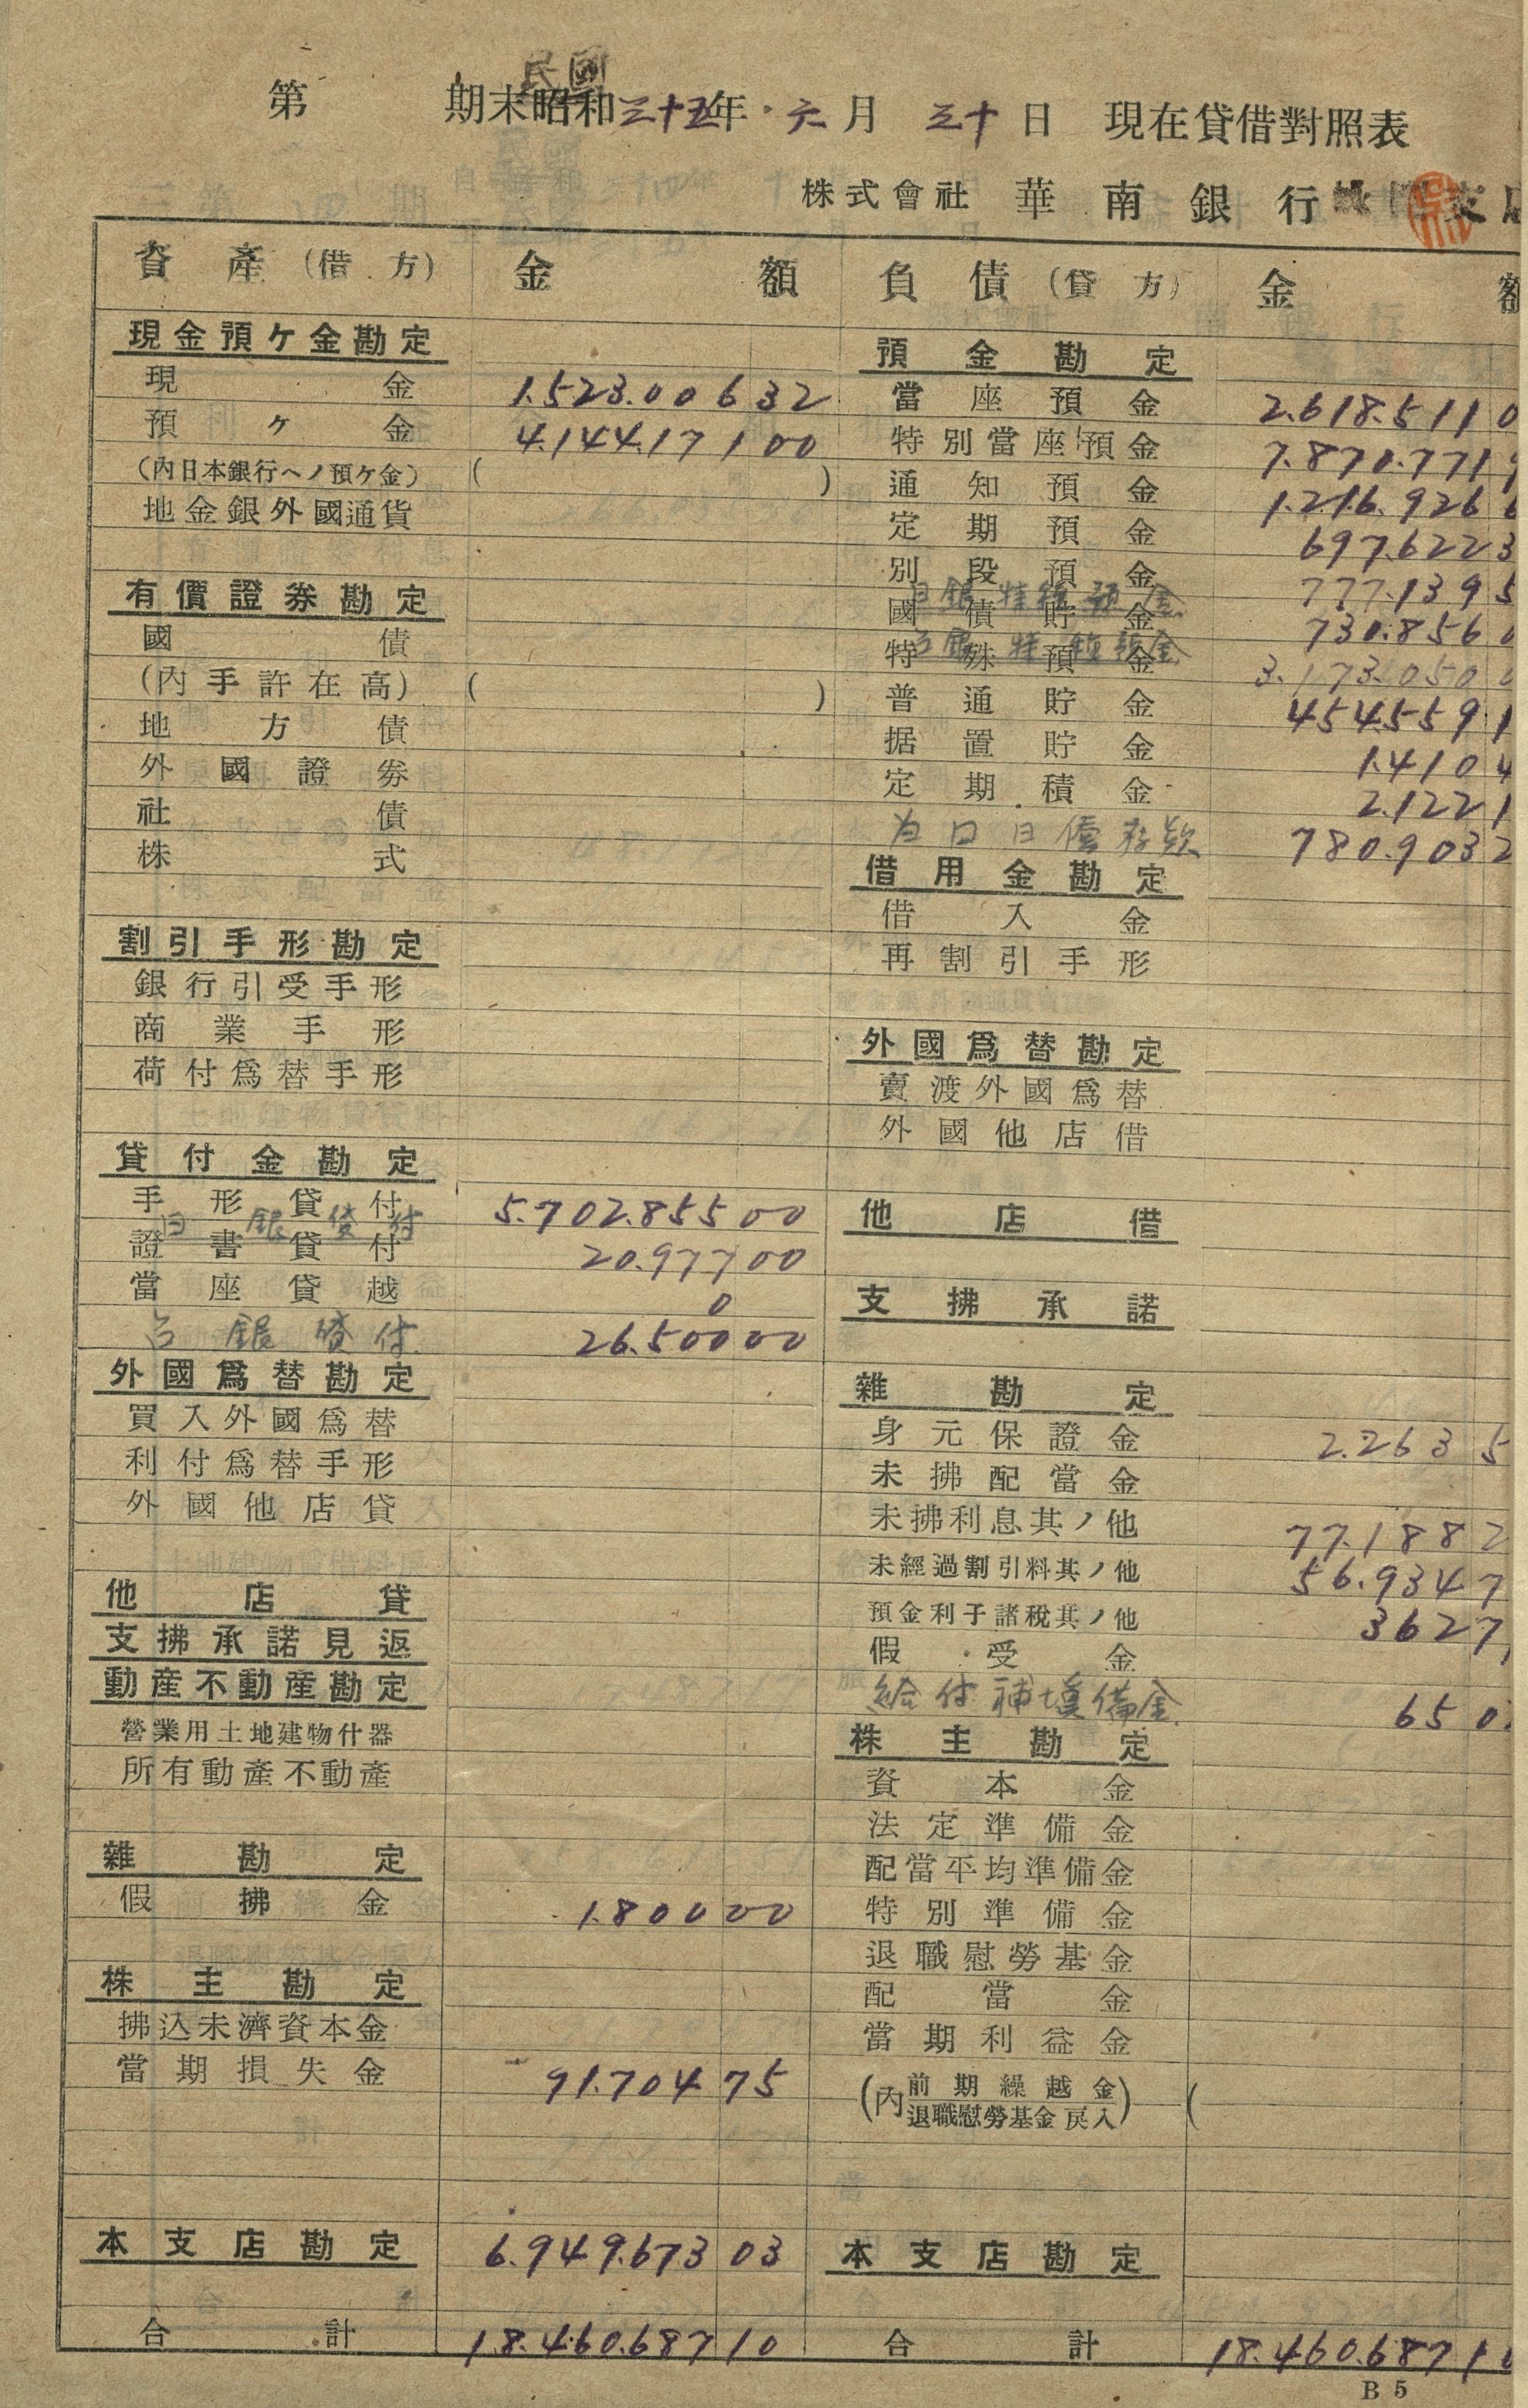 民國
第 期末昭和三十五年 六月 三十日 現在貸借對照表
株式會社 華南銀行 支店
資產(借方) 金額 負債(貸方) 金額
現金預ケ金勘定 預金勘定
現金 1.523.006 32 當座預金 2.618.511 0
預ケ金 4.144.171 00 特別當座預金 7.870.771 9
(內日本銀行ヘノ預ケ金) ( ) 通知預金 1.216.926 6
地金銀外國通貨 定期預金 697.622 3
別段預金 777.139 5
有價證券勘定 國債貯金 730.856 0
國債 特殊預金 3.173.050 0
(內手許在高) ( ) 普通貯金 454.559 1
地方債 据置貯金 1.410 4
外國證劵 定期積金 2.122 1
社債 780.903 2
株式 借用金勘定
借入金
割引手形勘定 再割引手形
銀行引受手形
商業手形 外國爲替勘定
荷付爲替手形 賣渡外國爲替
外國他店借
貸付金勘定
手形貸付 5.702.855 00 他店借
證書貸付 20.977 00
當座貸越 0 支拂承諾
台銀貸付 26.500 00
外國爲替勘定 雜勘定
買入外國爲替 身元保證金 2.263 5
利付爲替手形 未拂配當金
外國他店貸 未拂利息其ノ他 77.188 2
未經過割引料其ノ他 56.934 7
他店貸 預金利子諸稅其ノ他 362 7
支拂承諾見返 假受金
動產不動產勘定 給付補塡備金 650
營業用土地建物什器 株主勘定
所有動產不動產 資本金
法定準備金
雜勘定 配當平均準備金
假拂金 1.800 00 特別準備金
退職慰勞基金
株主勘定 配當金
拂込未濟資本金 當期利益金
當期損失金 91.704 75 (內 前期繰越金 退職慰勞基金戾入) (
本支店勘定 6.949.673 03 本支店勘定
合計 18.460.687 10 合計 18.460.687 1
B 5